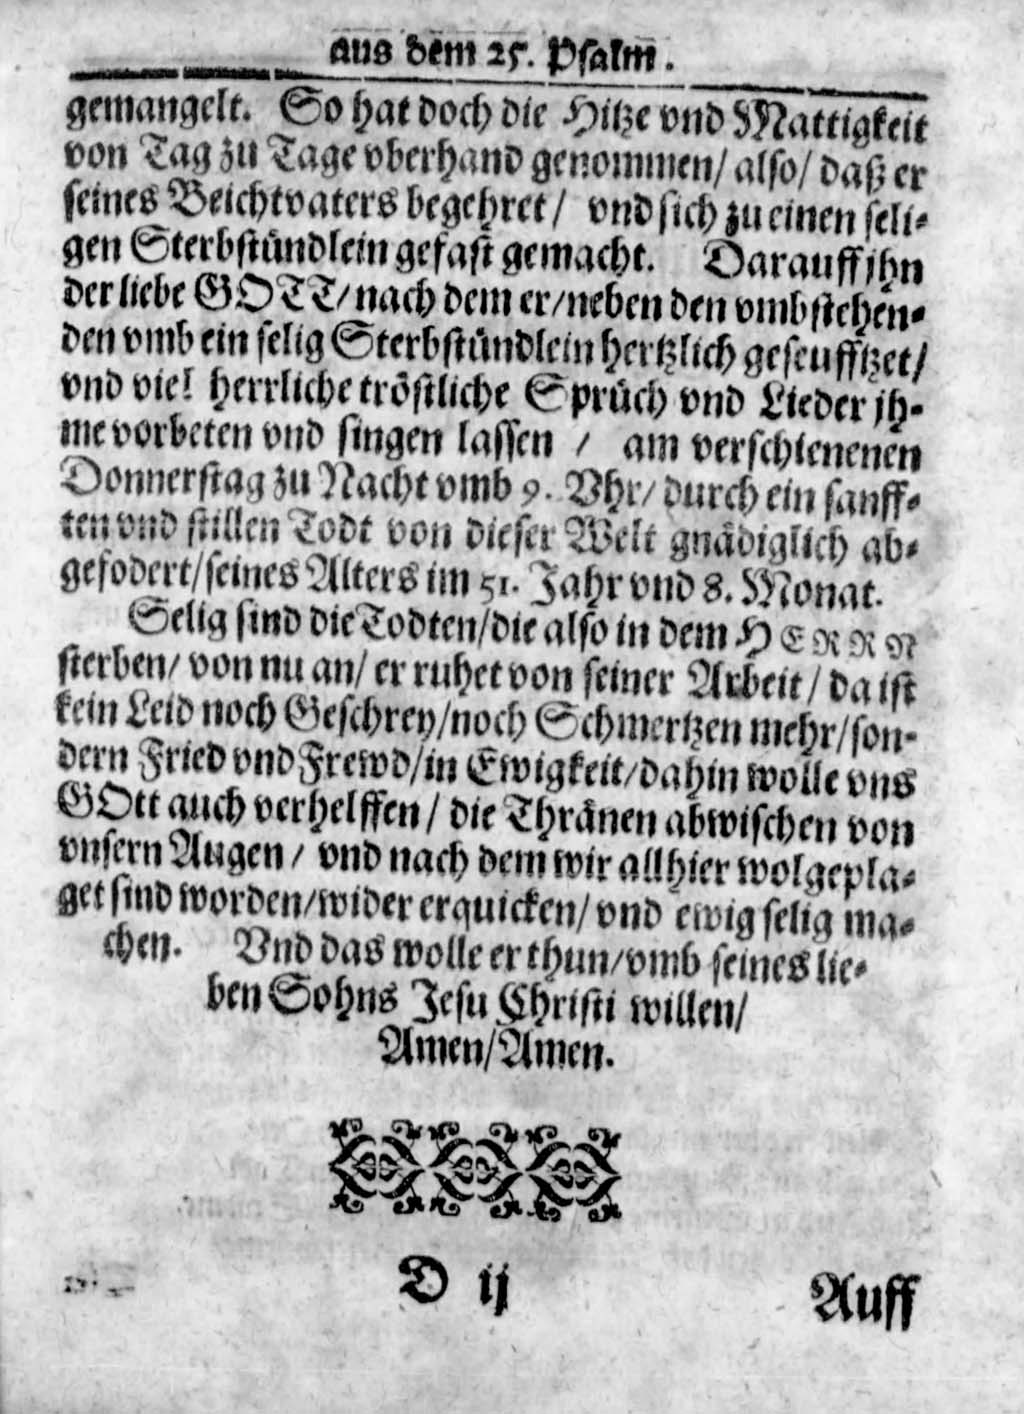 aus dem 25. Psalm.
gemangelt. So hat doch die Hitze vnd Mattigkeit
von Tag zu Tage vberhand genommen/ also/ daß er
seines Beichtvaters begehret/ vnd sich zu einen seli-
gen Sterbstündlein gefast gemacht. Darauff jhn
der liebe GOTT/ nach dem er/ neben den vmbstehen-
den vmb ein selig Sterbstündlein hertzlich geseufftzet/
vnd viel herrliche tröstliche Sprüch vnd Lieder jh-
me vorbeten vnd singen lassen / am verschienenen
Donnerstag zu Nacht vmb 9. Vhr/ durch ein sanff-
ten vnd stillen Todt von dieser Welt gnädiglich ab-
gefodert/ seines Alters im 51. Jahr vnd 8. Monat.
Selig sind die Todten/ die also in dem HERRN
sterben/ von nu an/ er ruhet von seiner Arbeit/ da ist
kein Leid noch Geschrey/ noch Schmertzen mehr/ son-
dern Fried vnd Frewd/ in Ewigkeit/ dahin wolle vns
GOtt auch verhelffen/ die Thränen abwischen von
vnsern Augen/ vnd nach dem wir allhier wolgepla-
get sind worden/ wider erquicken/ vnd ewig selig ma-
chen. Vnd das wolle er thun/ vmb seines lie-
ben Sohns Jesu Christi willen/
Amen/ Amen.
D ij
Auff